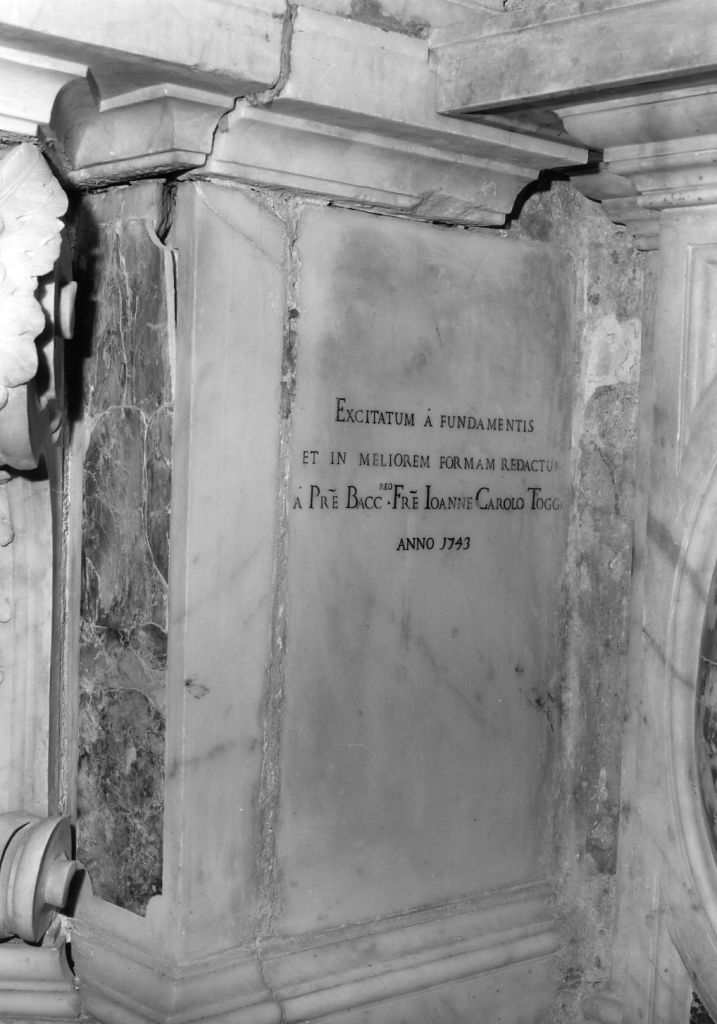 EXCITATUM Á FUNDAMENTIS
ET IN MELIOREM FORMAM REDACTUM
Á PRẼ BACC.RED FRẼ IOANNE CAROLO TOGG
ANNO 1743